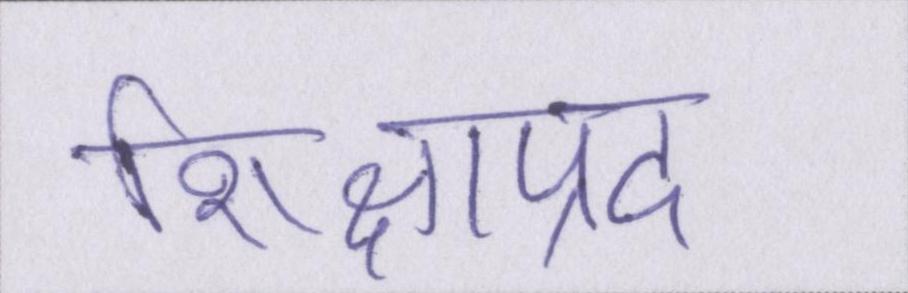 शिक्षाप्रद